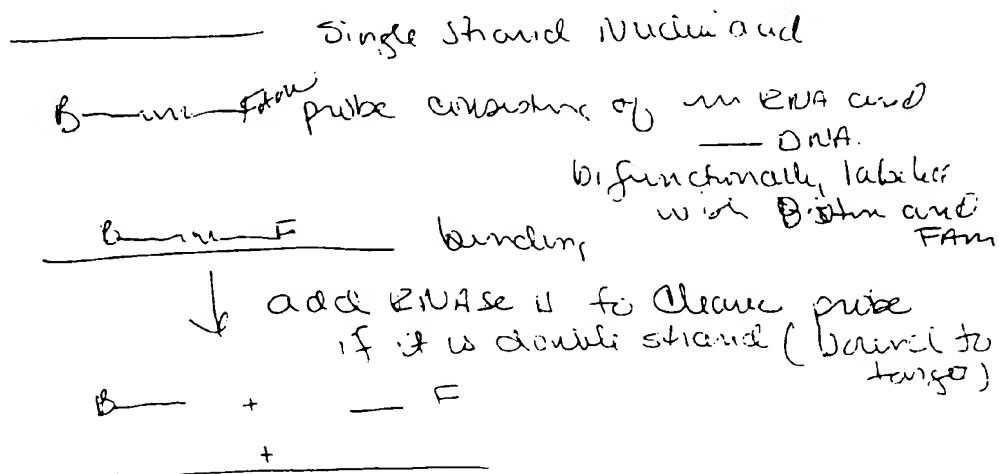 Single strand Nucleic acid
B FAM probe consisting of RNA and
DNA.
bifunctionally labeled
with Biotin and
FAM
B F binding
add RNAse H to Cleave probe
if it is double strand (bound to
target)
B + F
+